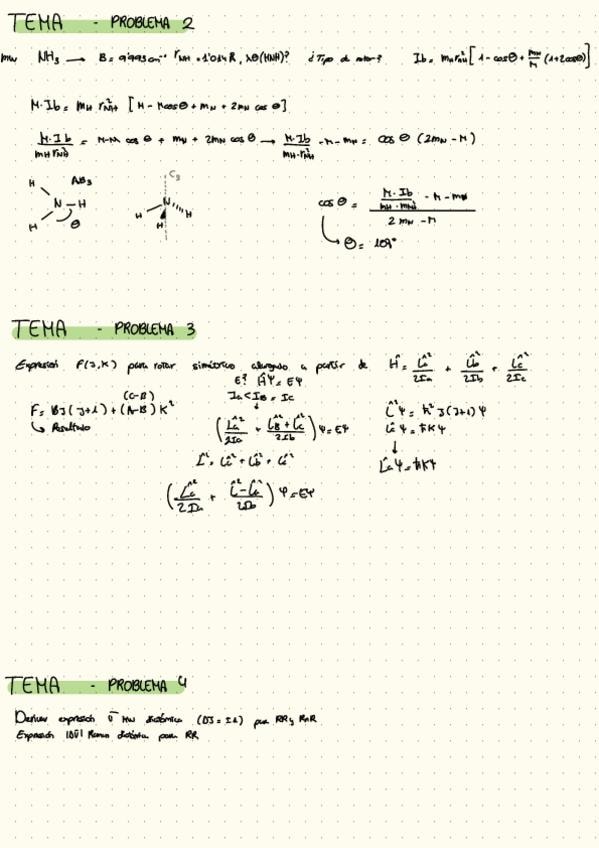 TEMA - PROBLEMA 2
mw NH₃ → B = cm⁻¹ r_NH = 1'014 Å, ∢θ(HNH)? ¿Tipo de rotor? I_b = m_H r²_NH [1 - cosθ + m_N/M (1+2cosθ)]
M·I_b = m_H r²_NH [M - Mcosθ + m_N + 2m_N cosθ]
M·I_b / m_H r²_NH = M - M cosθ + m_N + 2m_N cosθ → M·I_b / m_H·r²_NH - M - m_N = cosθ (2m_N - M)
H AB₃ C₃
N - H N
H θ H H H
cosθ = (M·I_b / m_H · - M - m_N) / (2m_N - M)
θ = 109°
TEMA - PROBLEMA 3
Expresión F(J,K) para rotor simétrico alargado a partir de Ĥ = L̂a²/2Ia + L̂b²/2Ib + L̂c²/2Ic
E? ĤΨ = EΨ
(C-B) Ia < Ib = Ic
F = BJ(J+1) + (A-B)K² L̂²Ψ = ħ²J(J+1)Ψ
↳ Resultado (L̂a²/2Ia + L̂b² + L̂c²/2Ib) Ψ = EΨ L̂cΨ = ħKΨ
L̂² = L̂a² + L̂b² + L̂c² L̂aΨ = ħKΨ
(L̂a²/2Ia + L̂² - L̂a²/2Ib) Ψ = EΨ
TEMA - PROBLEMA 4
Derivar expresión ν̄ MW diatómica (ΔJ = ±1) para RR y RnR
Expresión |Δν̄| Raman diatómica para RR